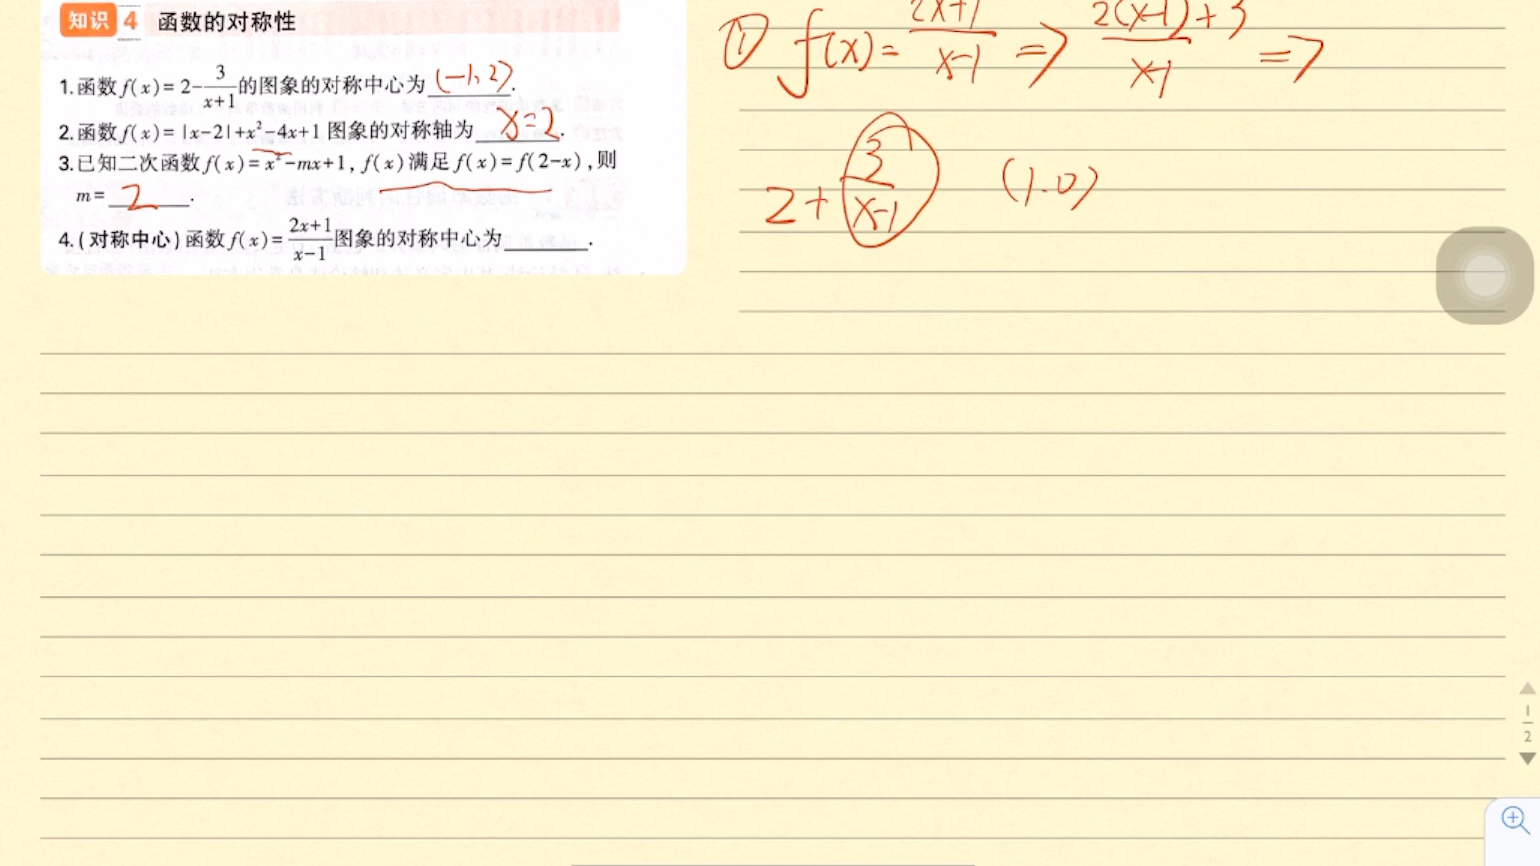 知识 4 函数的对称性
1.函数f(x)=2-3/(x+1)的图象的对称中心为(-1,2).
2.函数f(x)=|x-2|+x²-4x+1图象的对称轴为x=2.
3.已知二次函数f(x)=x²-mx+1,f(x)满足f(x)=f(2-x),则
m=2.
4.(对称中心)函数f(x)=(2x+1)/(x-1)图象的对称中心为______.
① f(x)=(2x+1)/(x-1) ⇒ (2(x-1)+3)/(x-1) ⇒
2+3/(x-1) (1.0)
1
2